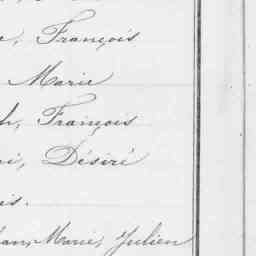 François
Marie
François
Désiré
Marie, Julien